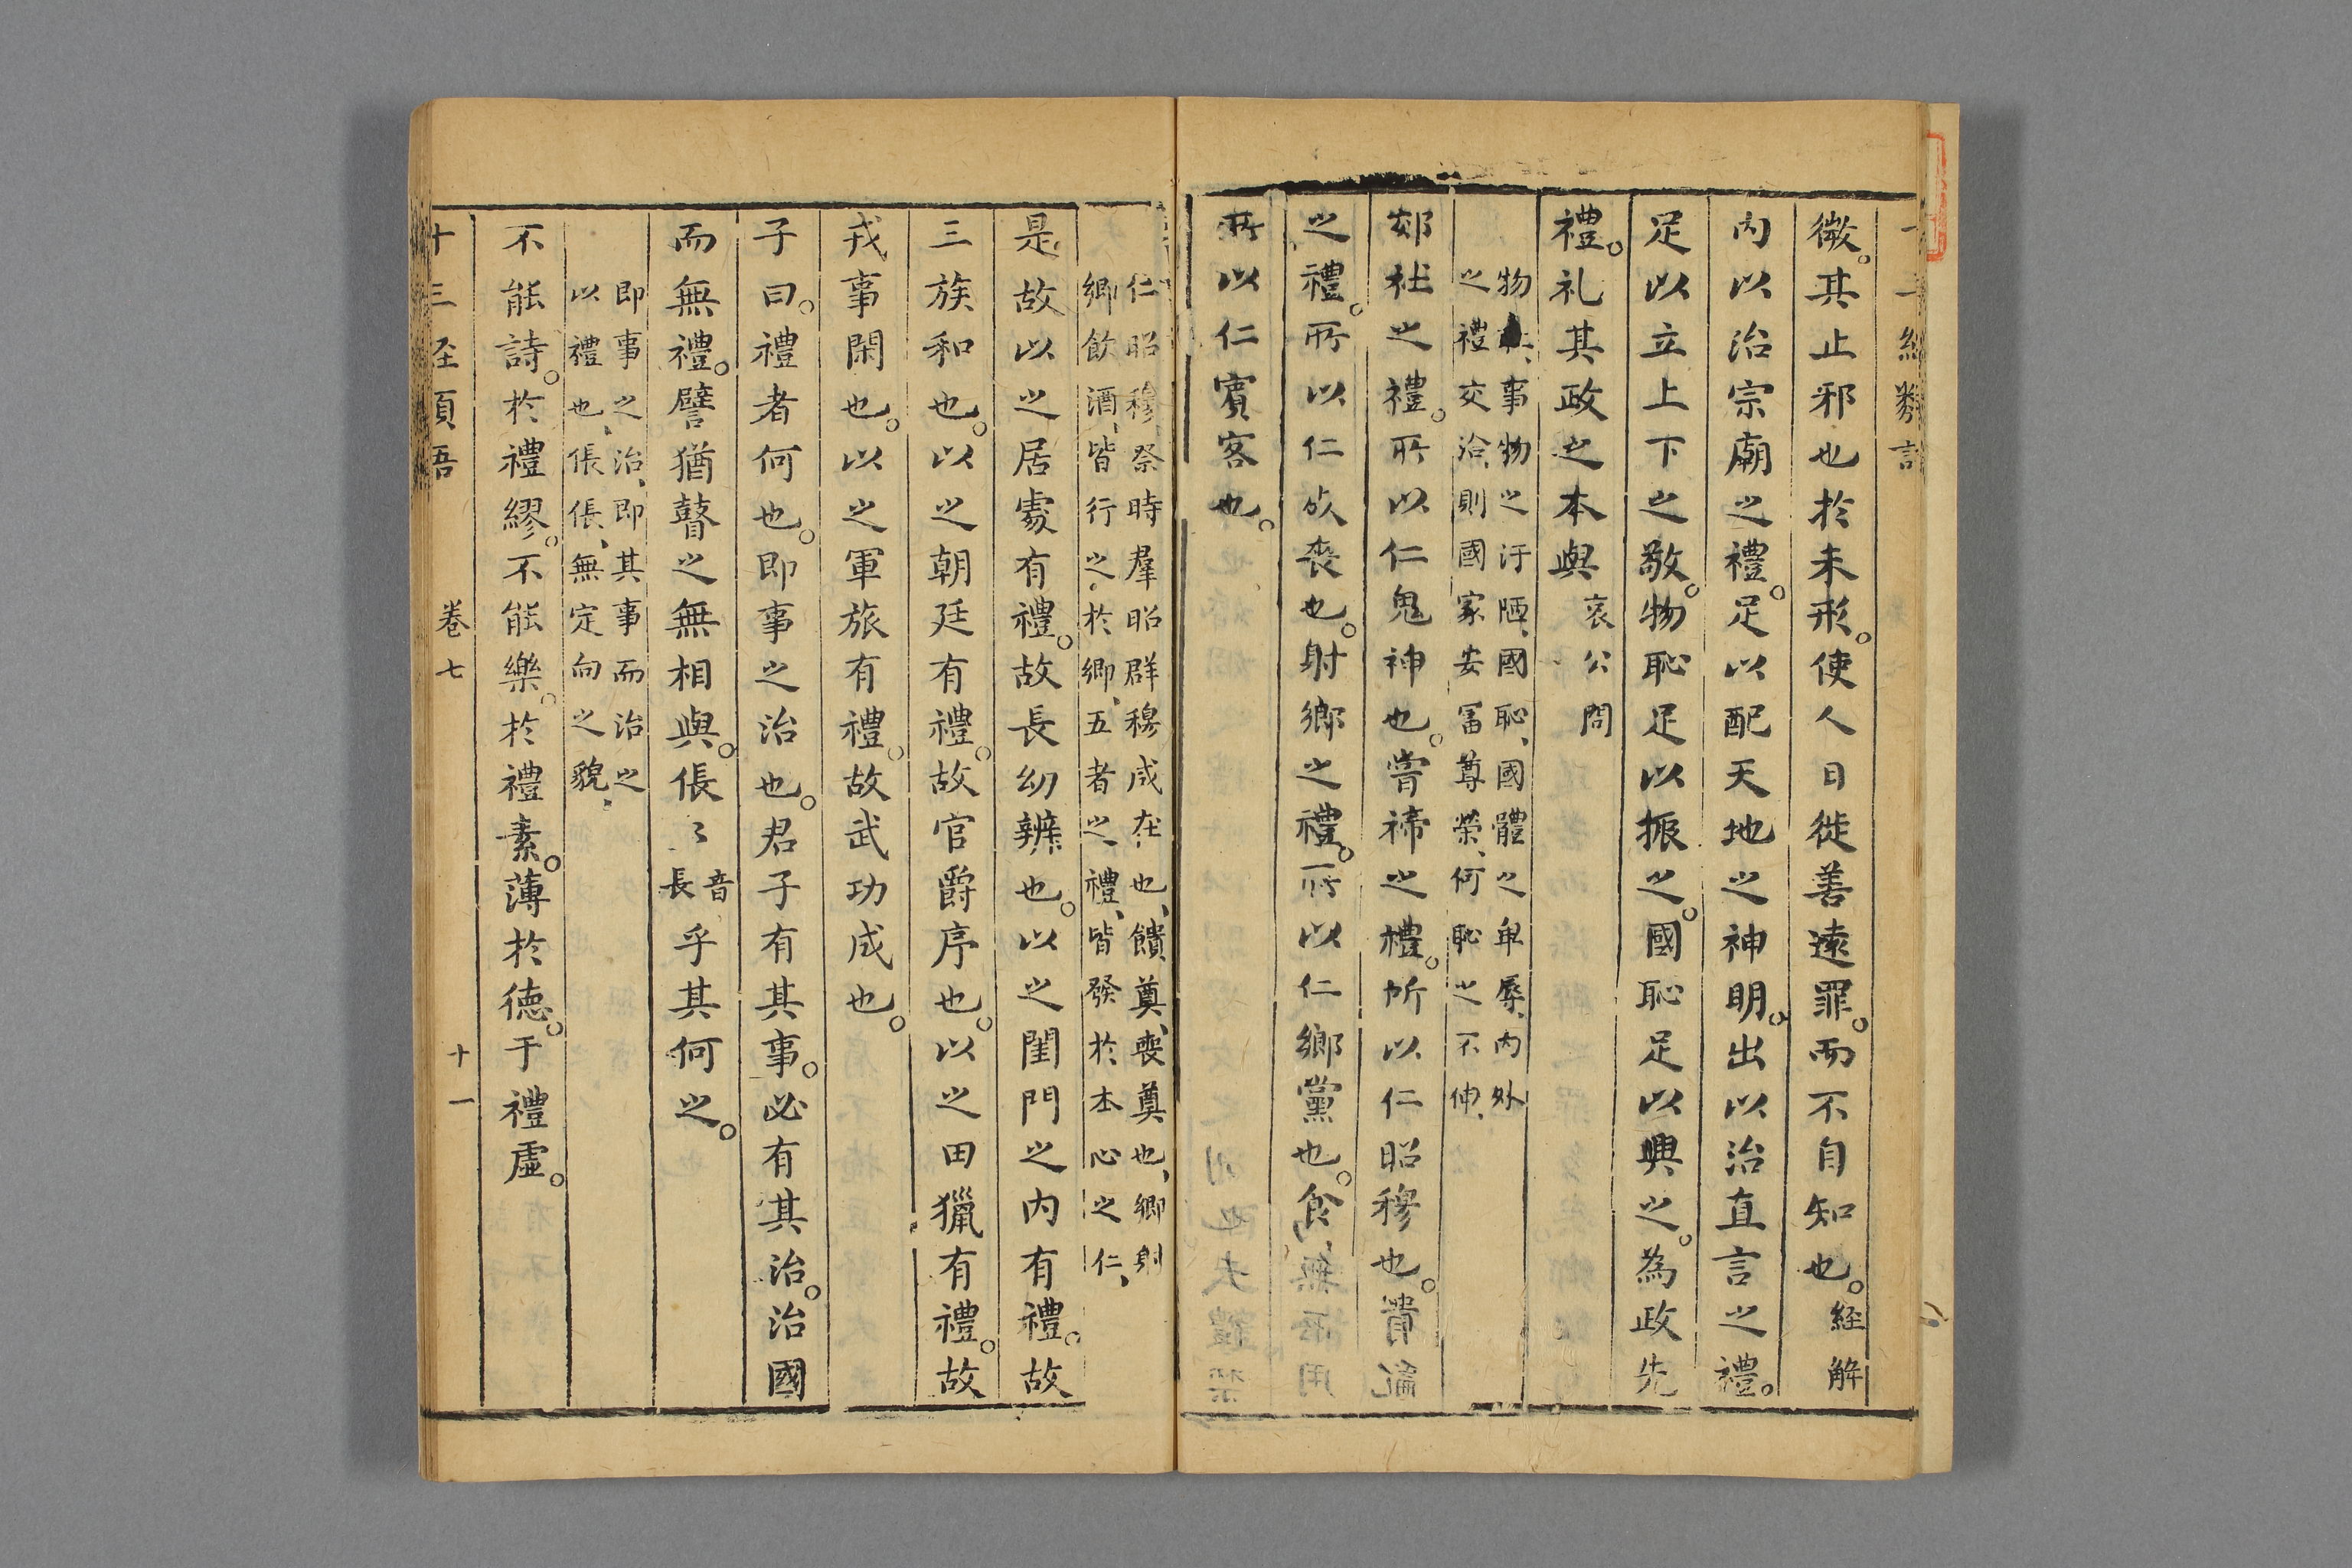 微。其止邪也於未形。使人日徙善遠罪。而不自知也。経解
內以治宗廟之禮。足以配天地之神明。出以治直言之禮。
足以立上下之敬。物恥足以振之。國恥足以興之。為政先
禮。礼其政之本與 哀公問
物事物之汙陋、國恥、國體之卑辱、内外
之禮交洽、則國家安冨尊榮、何恥之不伸、
郊社之禮。所以仁鬼神也。嘗禘之禮。所以仁昭穆也。饋奠
之禮。所以仁死喪也。射鄉之禮。所以仁鄉黨也。食
所以仁賓客也。
仁昭穆、祭時羣昭群穆咸在也、饋奠、喪奠也、鄉射
鄉飲酒、皆行之於鄉、五者之禮、皆發於本心之仁、
是故以之居處有禮。故長幼辨也。以之閨門之内有禮。故
三族和也。以之朝廷有禮。故官爵序也。以之田獵有禮。故
戎事閑也。以之軍旅有禮。故武功成也。
子曰。禮者何也。即事之治也。君子有其事。必有其治。治國
而無禮。譬猶瞽之無相與。倀〻音長乎其何之。
即事之治、即其事而治之
以禮也、倀倀、無定向之貌、
不能詩。於禮繆。不能樂。於禮素。薄於德。于禮虛。
卷七 十一